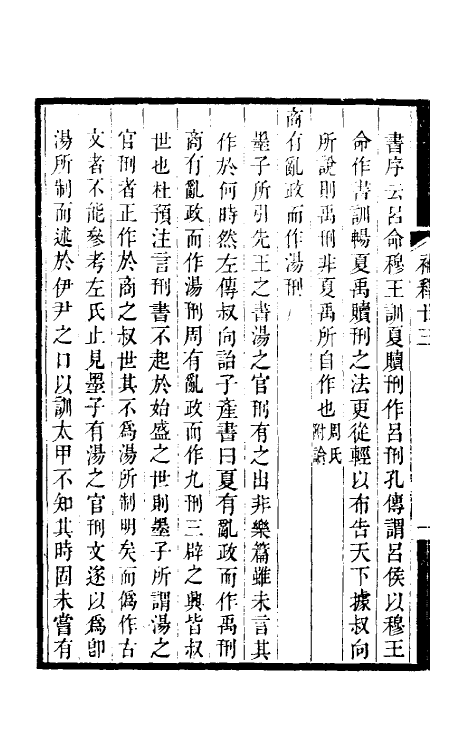 補釋廿三
一
書序云呂命穆王訓夏贖刑作呂刑孔傳謂呂侯以穆王
命作書訓暢夏禹贖刑之法更從輕以布告天下據叔向
所說則禹刑非夏禹所自作也周氏附論
商有亂政而作湯刑
墨子所引先王之書湯之官刑有之出非樂篇雖未言其
作於何時然左傳叔向詒子產書曰夏有亂政而作禹刑
商有亂政而作湯刑周有亂政而作九刑三辟之興皆叔
世也杜預注言刑書不起於始盛之世則墨子所謂湯之
官刑者正作於商之叔世其不爲湯所制明矣而僞作古
文者不能參考左氏止見墨子有湯之官刑文遂以爲卽
湯所制而述於伊尹之口以訓太甲不知其時固未嘗有